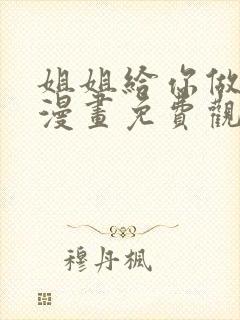 姐姐給你做
漫畫免費觀
穆丹楓